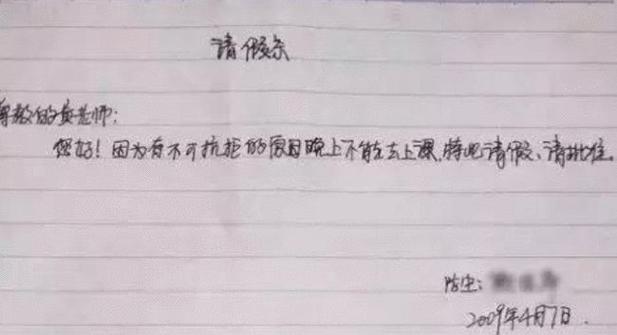 请假条
尊敬的黄老师：
您好！因为有不可抗拒的原因晚上不能去上课，特此请假、请批准。
2009年4月7日．